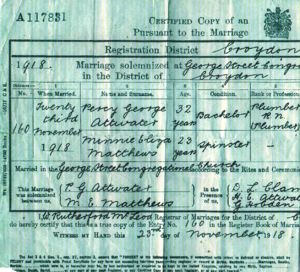 A117831
CERTIFIED COPY of an
Pursuant to the Marriage
Registration District Croydon
1918. Marriage solemnized at George Street Congreg
in the District of Croydon
When Married. Name and Surname. Age. Condition. Rank or Profession
Twenty Percy George 32 Bachelor Plumber
third Attwater years R.N.
160 November (Plumber)
1918 Minnie Eliza 23 Spinster —
Matthews years
Married in the George Street Congregational Church according to the Rites and Ceremonies
This Marriage was solemnized between us, P. G. Attwater in the Presence of us,
M. E. Matthews H. E. Attwat
W. Rutherford McLeod Registrar of Marriages for the District of
do hereby certify that this is a true copy of the Entry No. 160 in the Register Book of Marri
WITNESS MY HAND this 23rd day of November 1918.